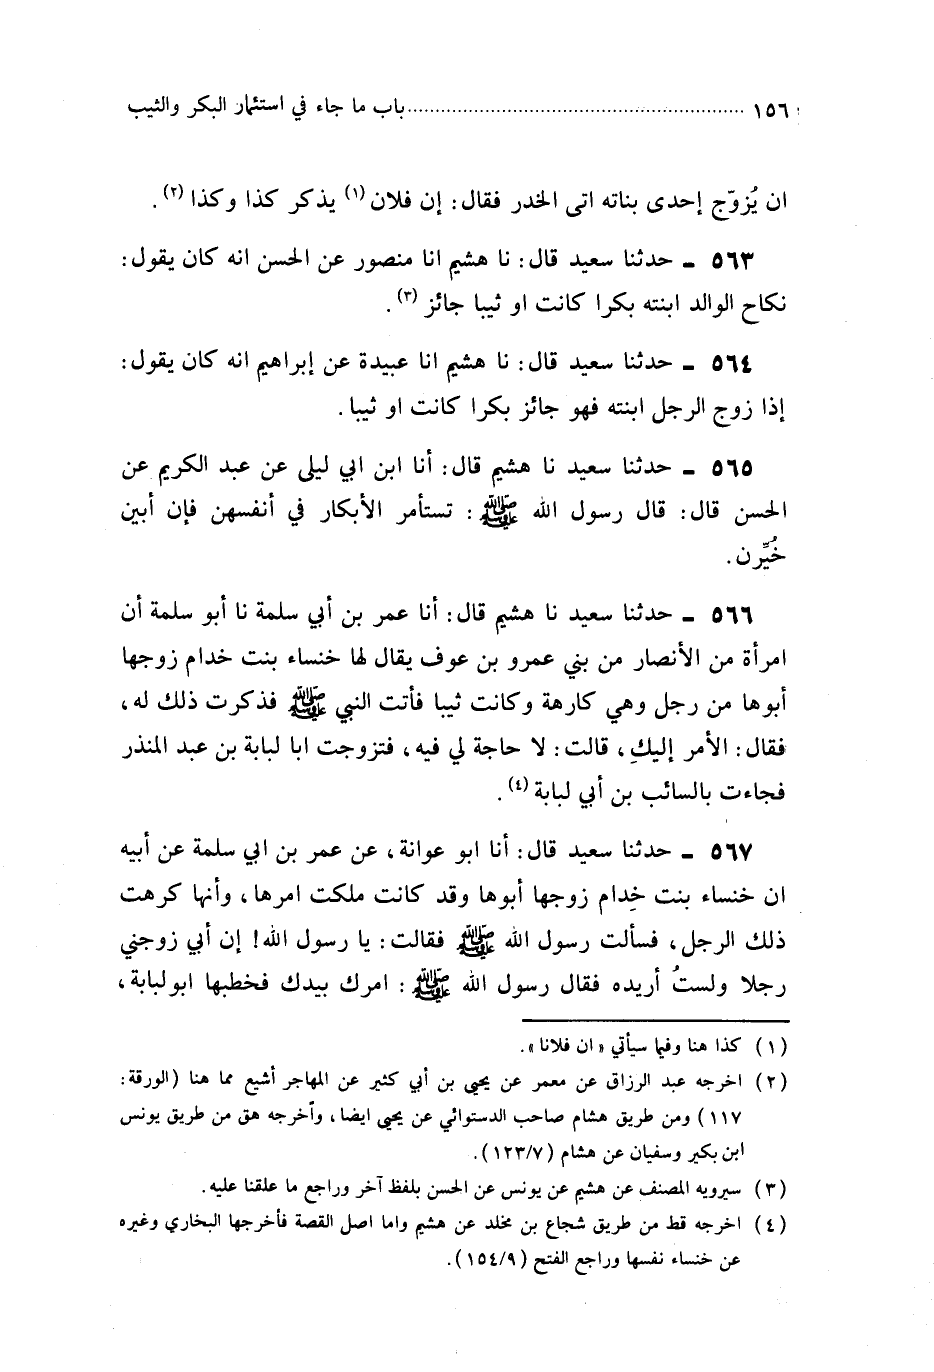 ١٥٦ ........................ باب ما جاء في استئمار البكر والثيب
ان يُزوّج إحدى بناته اتى الخدر فقال: إن فلان (١) يذكر كذا وكذا (٢).
٥٦٣ ـ حدثنا سعيد قال: نا هشيم انا منصور عن الحسن انه كان يقول:
نكاح الوالد ابنته بكرا كانت او ثيبا جائز (٣).
٥٦٤ ـ حدثنا سعيد قال: نا هشيم انا عبيدة عن إبراهيم انه كان يقول:
إذا زوج الرجل ابنته فهو جائز بكرا كانت او ثيبا.
٥٦٥ ـ حدثنا سعيد نا هشيم قال: أنا ابن ابي ليلى عن عبد الكريم عن
الحسن قال: قال رسول الله ﷺ : تستأمر الأبكار في أنفسهن فإن أبين
خُيِّرن.
٥٦٦ ـ حدثنا سعيد نا هشيم قال: أنا عمر بن أبي سلمة نا أبو سلمة أن
امرأة من الأنصار من بني عمرو بن عوف يقال لها خنساء بنت خدام زوجها
أبوها من رجل وهي كارهة وكانت ثيبا فأتت النبي ﷺ فذكرت ذلك له،
فقال: الأمر إليكِ، قالت: لا حاجة لي فيه، فتزوجت ابا لبابة بن عبد المنذر
فجاءت بالسائب بن أبي لبابة (٤).
٥٦٧ ـ حدثنا سعيد قال: أنا ابو عوانة، عن عمر بن ابي سلمة عن أبيه
ان خنساء بنت خِدام زوجها أبوها وقد كانت ملكت امرها، وأنها كرهت
ذلك الرجل، فسألت رسول الله ﷺ فقالت: يا رسول الله! إن أبي زوجني
رجلا ولستُ أريده فقال رسول الله ﷺ : امرك بيدك فخطبها ابو لبابة،
(١) كذا هنا وفيما سيأتي «ان فلانا».
(٢) اخرجه عبد الرزاق عن معمر عن يحيى بن أبي كثير عن المهاجر أشيع مما هنا (الورقة:
١١٧) ومن طريق هشام صاحب الدستوائي عن يحيى ايضا، وأخرجه هق من طريق يونس
ابن بكير وسفيان عن هشام (١٢٣/٧).
(٣) سيرويه المصنف عن هشيم عن يونس عن الحسن بلفظ آخر وراجع ما علقنا عليه.
(٤) اخرجه قط من طريق شجاع بن مخلد عن هشيم واما اصل القصة فأخرجها البخاري وغيره
عن خنساء نفسها وراجع الفتح (١٥٤/٩).